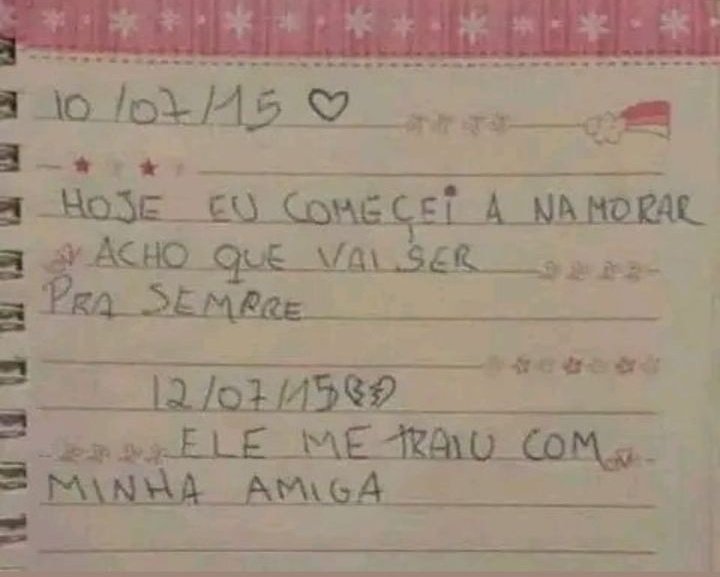 10/07/15 ♡
HOJE EU COMEÇEI A NAMORAR
ACHO QUE VAI SER
PRA SEMPRE
12/07/15 💔
ELE ME TRAIU COM
MINHA AMIGA